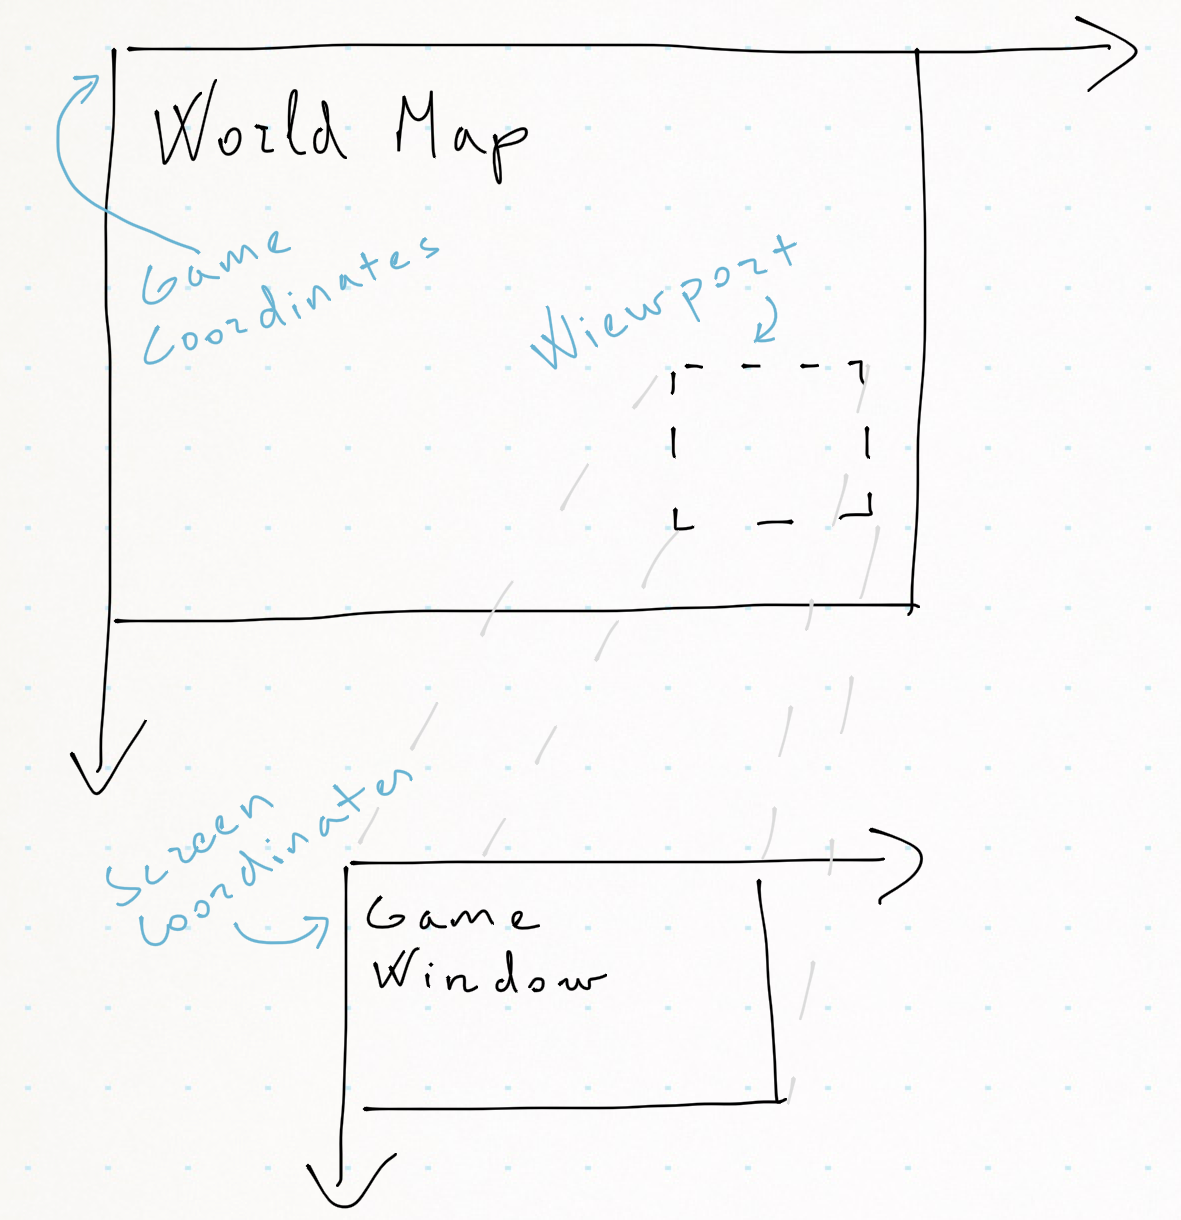 World Map
Game
Coordinates
Viewport
Screen
Coordinates
Game
Window